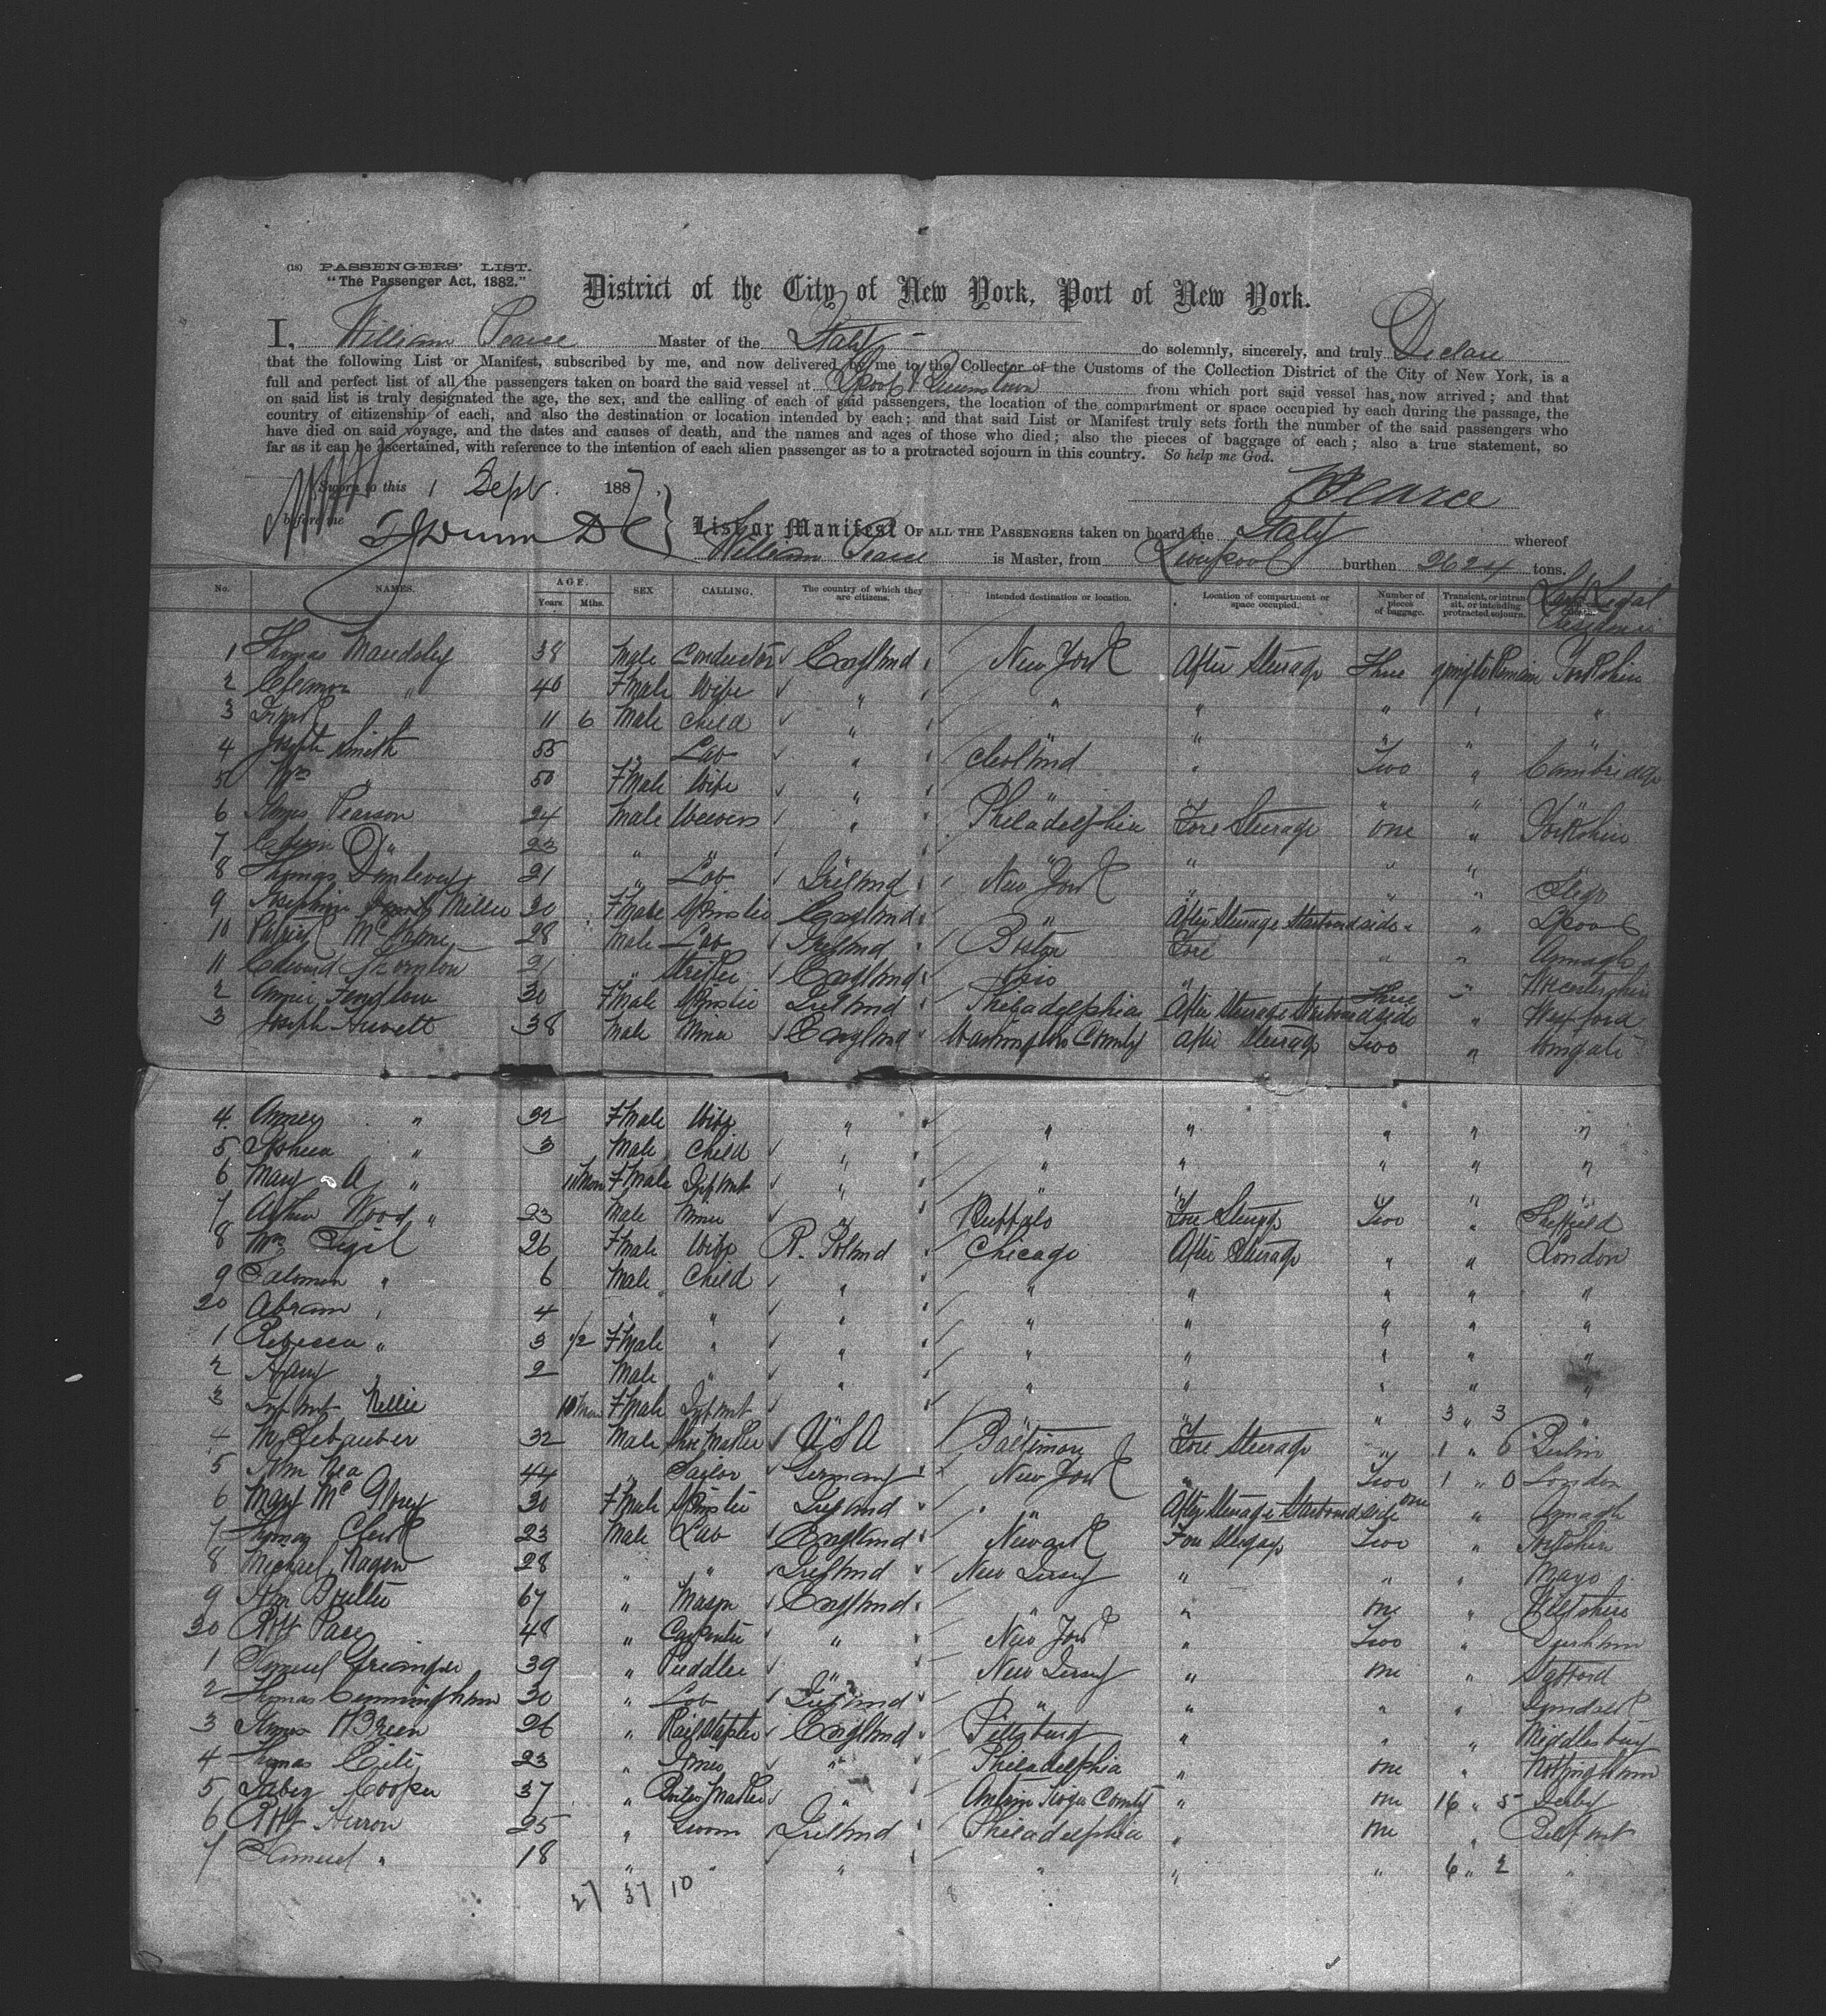 (18) PASSENGERS' LIST.
"The Passenger Act, 1882."
District of the City of New York, Port of New York.
I, William Pearce Master of the Italy do solemnly, sincerely, and truly Declare
that the following List or Manifest, subscribed by me, and now delivered by me to the Collector of the Customs of the Collection District of the City of New York, is a
full and perfect list of all the passengers taken on board the said vessel at Lpool & Queenstown from which port said vessel has now arrived; and that
on said list is truly designated the age, the sex, and the calling of each of said passengers, the location of the compartment or space occupied by each during the passage, the
country of citizenship of each, and also the destination or location intended by each; and that said List or Manifest truly sets forth the number of the said passengers who
have died on said voyage, and the dates and causes of death, and the names and ages of those who died; also the pieces of baggage of each; also a true statement, so
far as it can be ascertained, with reference to the intention of each alien passenger as to a protracted sojourn in this country. So help me God.
Sworn to this 1 Sept. 1887 WPearce
before me
List or Manifest OF ALL THE PASSENGERS taken on board the Italy whereof
William Pearce is Master, from Liverpool burthen 2624 tons.
No. NAMES. AGE. Years Mths. SEX CALLING. The country of which they are citizens. Intended destination or location. Location of compartment or space occupied. Number of pieces of baggage. Transient, or in transit, or intending protracted sojourn. Last Legal Residence
1 Thomas Maudsley 38 Male Conductor England New York After Steerage Three going to Remain Yorkshire
2 Eleanor " 40 F Male Wife " " " " " "
3 Frank 11 6 Male Child " " " " " "
4 Joseph Smith 55 " Lab " Cleveland " Two " Cambridge
5 Mrs " 50 F Male Wife " " " " " "
6 James Pearson 24 Male Weavers " Philadelphia Fore Steerage One " Yorkshire
7 " 23 " " " " " " "
8 Thomas Dunleavy 21 " Lab Ireland New York " " " Sligo
9 Josephine Miller 20 F Male Spinster England " After Steerage Starboard side " " Lpool
10 Patrick 28 Male Lab Ireland Boston Fore " " Armagh
11 Edward Thornton 21 " England Ohio " "
2 Annie 30 F Male Spinster Ireland Philadelphia After Steerage Starboard side Three " Wexford
3 Joseph Hewett 38 Male Miner England Washington County After Steerage Two "
4 Annie " 32 F Male Wife " " " " " "
5 Joshua " 3 Male Child " " " " " "
6 Mary A " 11 Mon F Male Infant " " " " " "
7 Arthur Wood " 23 Male Miner " Buffalo Fore Steerage Two " Sheffield
8 Mrs Segil 26 F Male Wife R. Poland Chicago After Steerage " " London
9 Salomon " 6 Male Child " " " " " "
20 Abram " 4 " " " " " " " "
1 Rebecca " 3 1/2 F Male " " " " " " "
2 Harry 2 Male " " " " " " "
3 Infant Nellie 10 Mon F Male Infant " " " 3 " 3 "
4 32 Male Shoe Maker USA Baltimore Fore Steerage " 1 " 6
5 44 " Tailor Germany New York " Two 1 " 0 London
6 Mary 30 F Male Spinster Ireland " After Steerage Starboard side One " Armagh
7 Thomas Clark 23 Male Lab England Newark Fore Steerage Two " Yorkshire
8 Michael 28 " " Ireland New Jersey " " " Mayo
9 67 " Mason England " " One " Wiltshire
30 Robt 48 " Carpenter " New York " Two " Durham
1 Samuel 39 " Puddler " New Jersey " One " Stafford
2 Thomas Cunningham 30 " Lab Ireland " " " "
3 James 26 " England Pittsburg " " " Middlesbury
4 Thomas 23 " " Philadelphia " One " Nottingham
5 Jabez Cooper 37 " Boiler Maker " Antrim Tioga County " One 16 " 5 Derby
6 Robt 25 " Groom Ireland Philadelphia " One " Belfast
7 Samuel " 18 " " " " " " 6 " 2 "
27 37 10